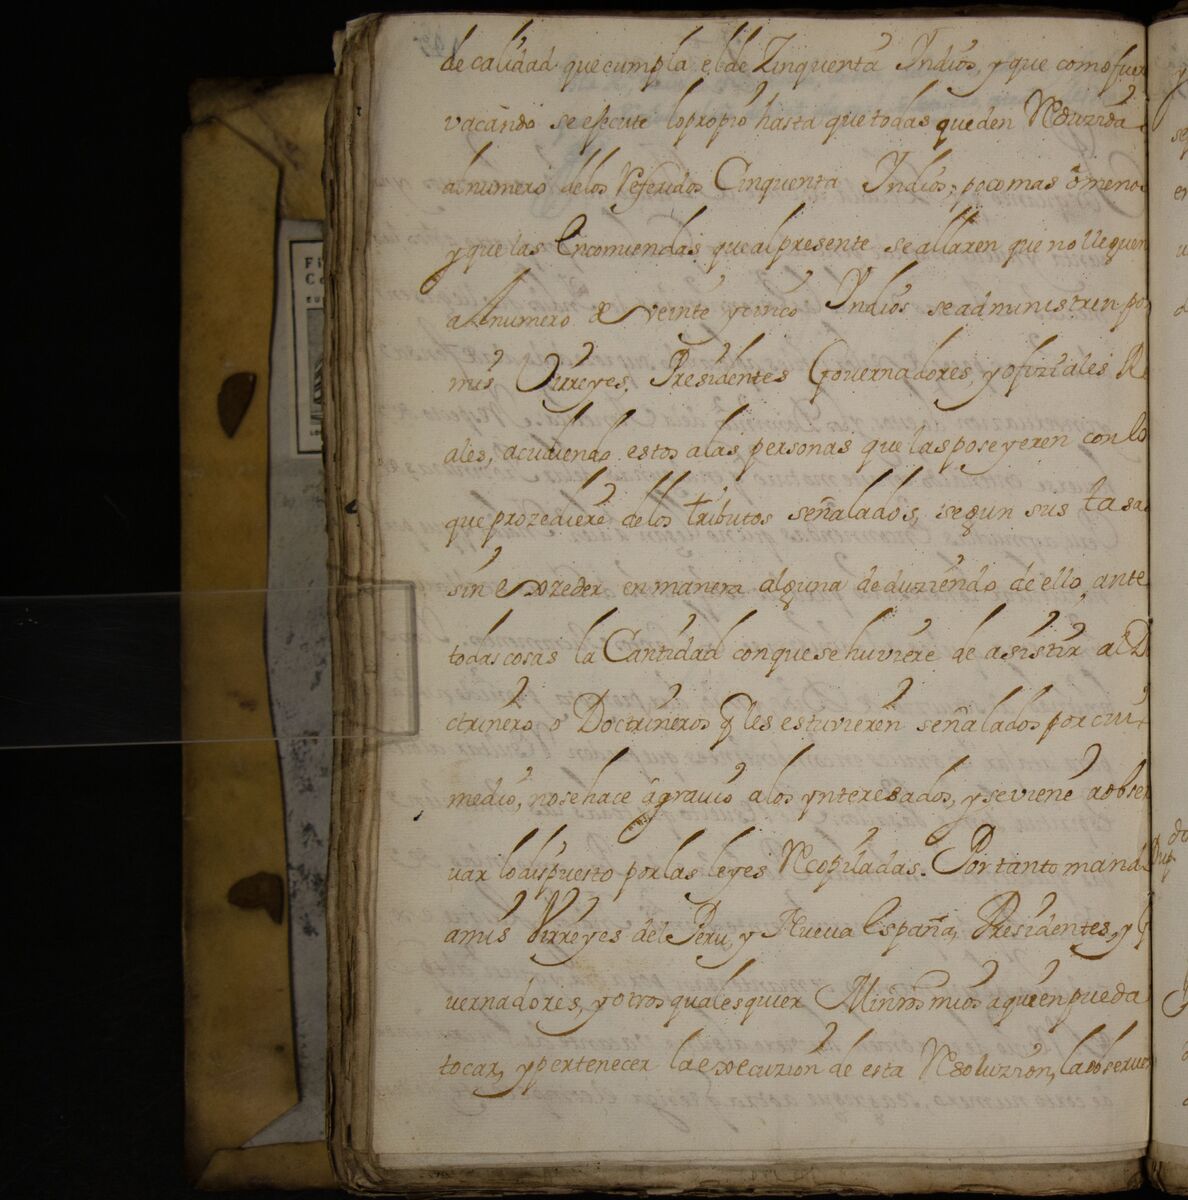 de calidad que cumpla el de Zinquenta Indios, y que como fuer
vacando se execute lo propio hasta que todas queden Reduzida
al numero de los Referidos Cinquenta Indios, poco mas ô meno
y que las Encomiendas que al presente se allaren que no lleguen
al numero de veinte y cinco Indios se administren po
mis Virreyes, Presidentes Governadores, y ofiziales Re
ales, acudiendo estos a las personas que las poseyeren con lo
que prozediere de los tributos señalados, segun sus tasa
sin exzeder en manera alguna deduziendo de ello, ante
todas cosas la Cantidad con que se huviere de asistir al D
ctrinero o Doctrineros q les estuvieren señalados por cuio
medio, no se hace agravio a los ynteresados, y se viene a obser
uar lo dispuesto por las leyes Recopiladas. Por tanto mand
a mis Virreyes del Peru, y Nueua España, Presidentes, y G
uernadores, y otros qualesquier Minros mios a quien pueda
tocar, y pertenecer la execuzion de esta Resoluzion, la obserue